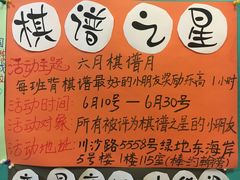 棋谱之星
活动主题: 六月棋谱月
每班背棋谱最好的小朋友奖励乐高1小时
活动时间: 6月10号—6月30号
活动对象: 所有被评为棋谱之星的小朋友
活动地址: 川沙路5558号绿地东海岸
5号楼1楼115室